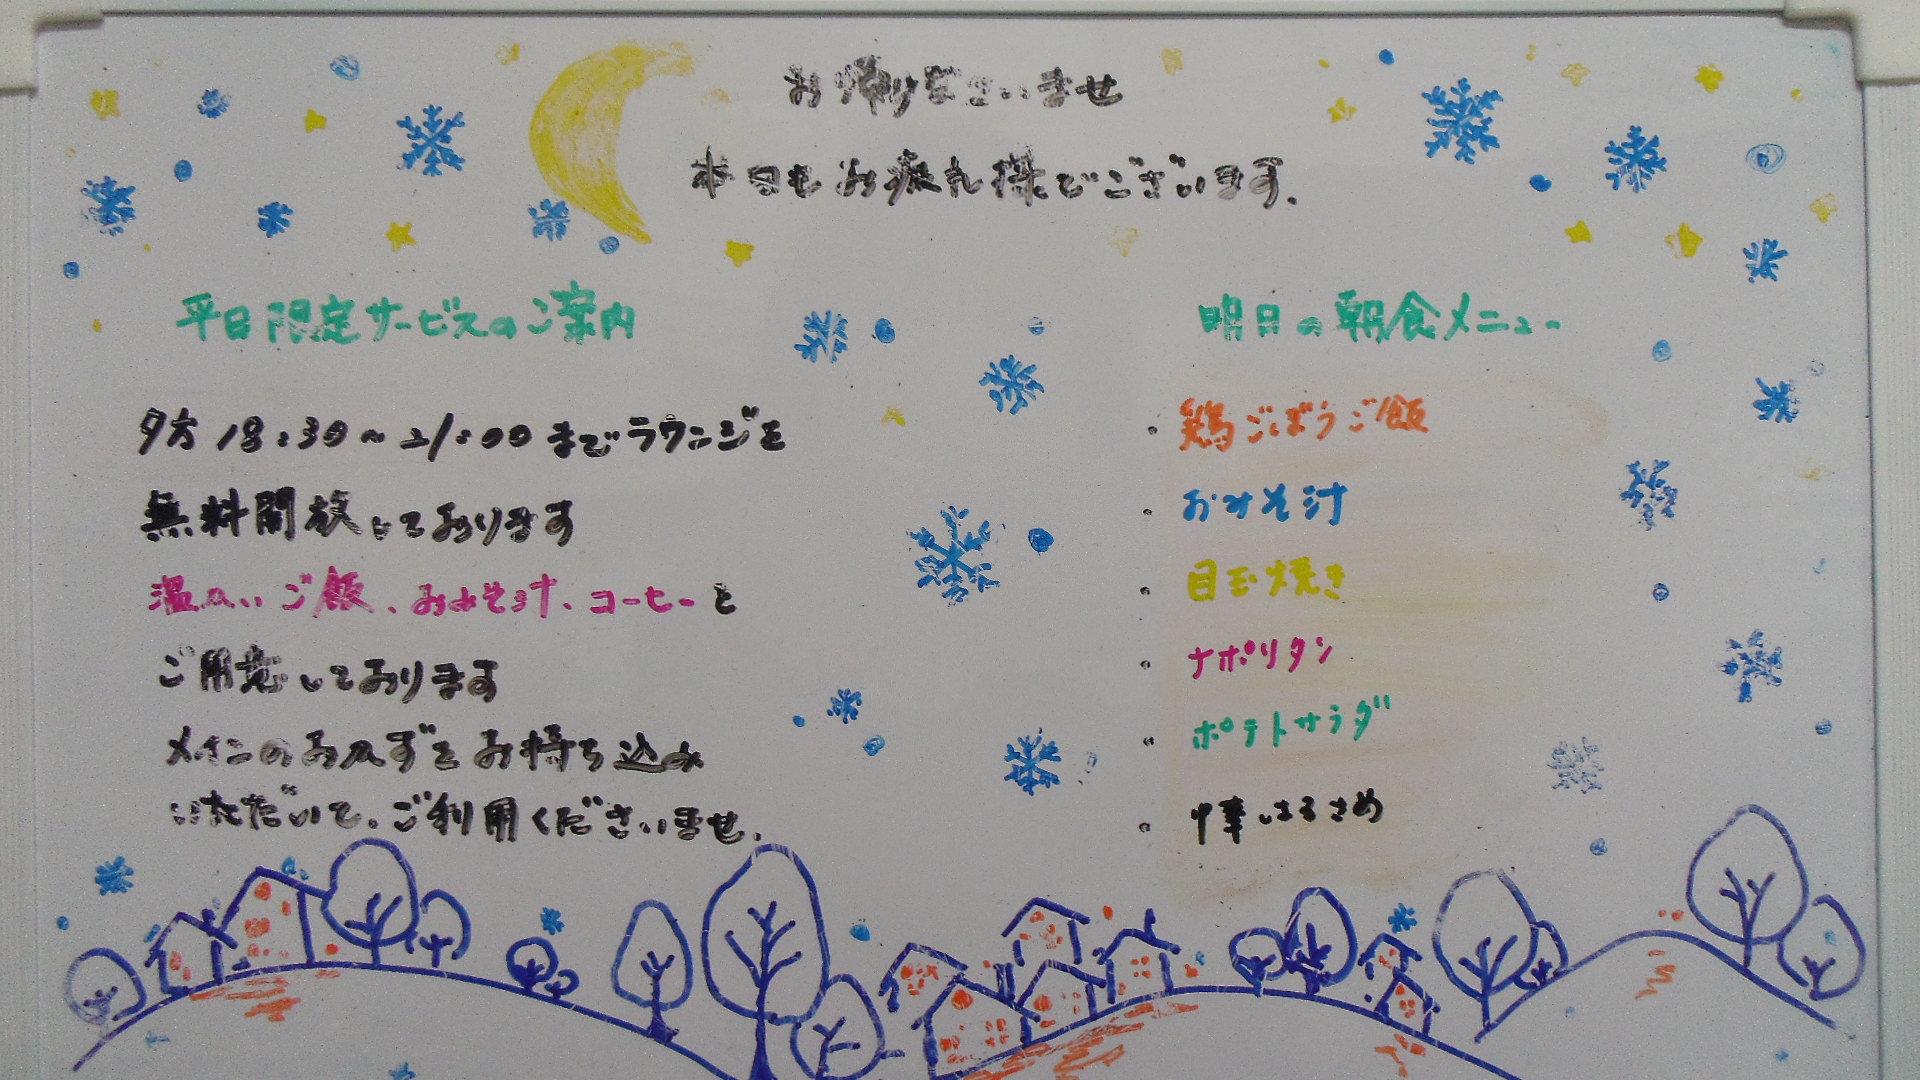 お帰りなさいませ
本日もお疲れ様でございます.
平日限定サービスのご案内
夕方 18:30～21:00 までラウンジを
無料開放しております
温かいご飯、おみそ汁、コーヒーと
ご用意しております
メインのおかずをお持ち込み
いただいて、ご利用くださいませ.
明日の朝食メニュー
・鶏ごぼうご飯
・おみそ汁
・目玉焼き
・ナポリタン
・ポテトサラダ
・中華はるさめ